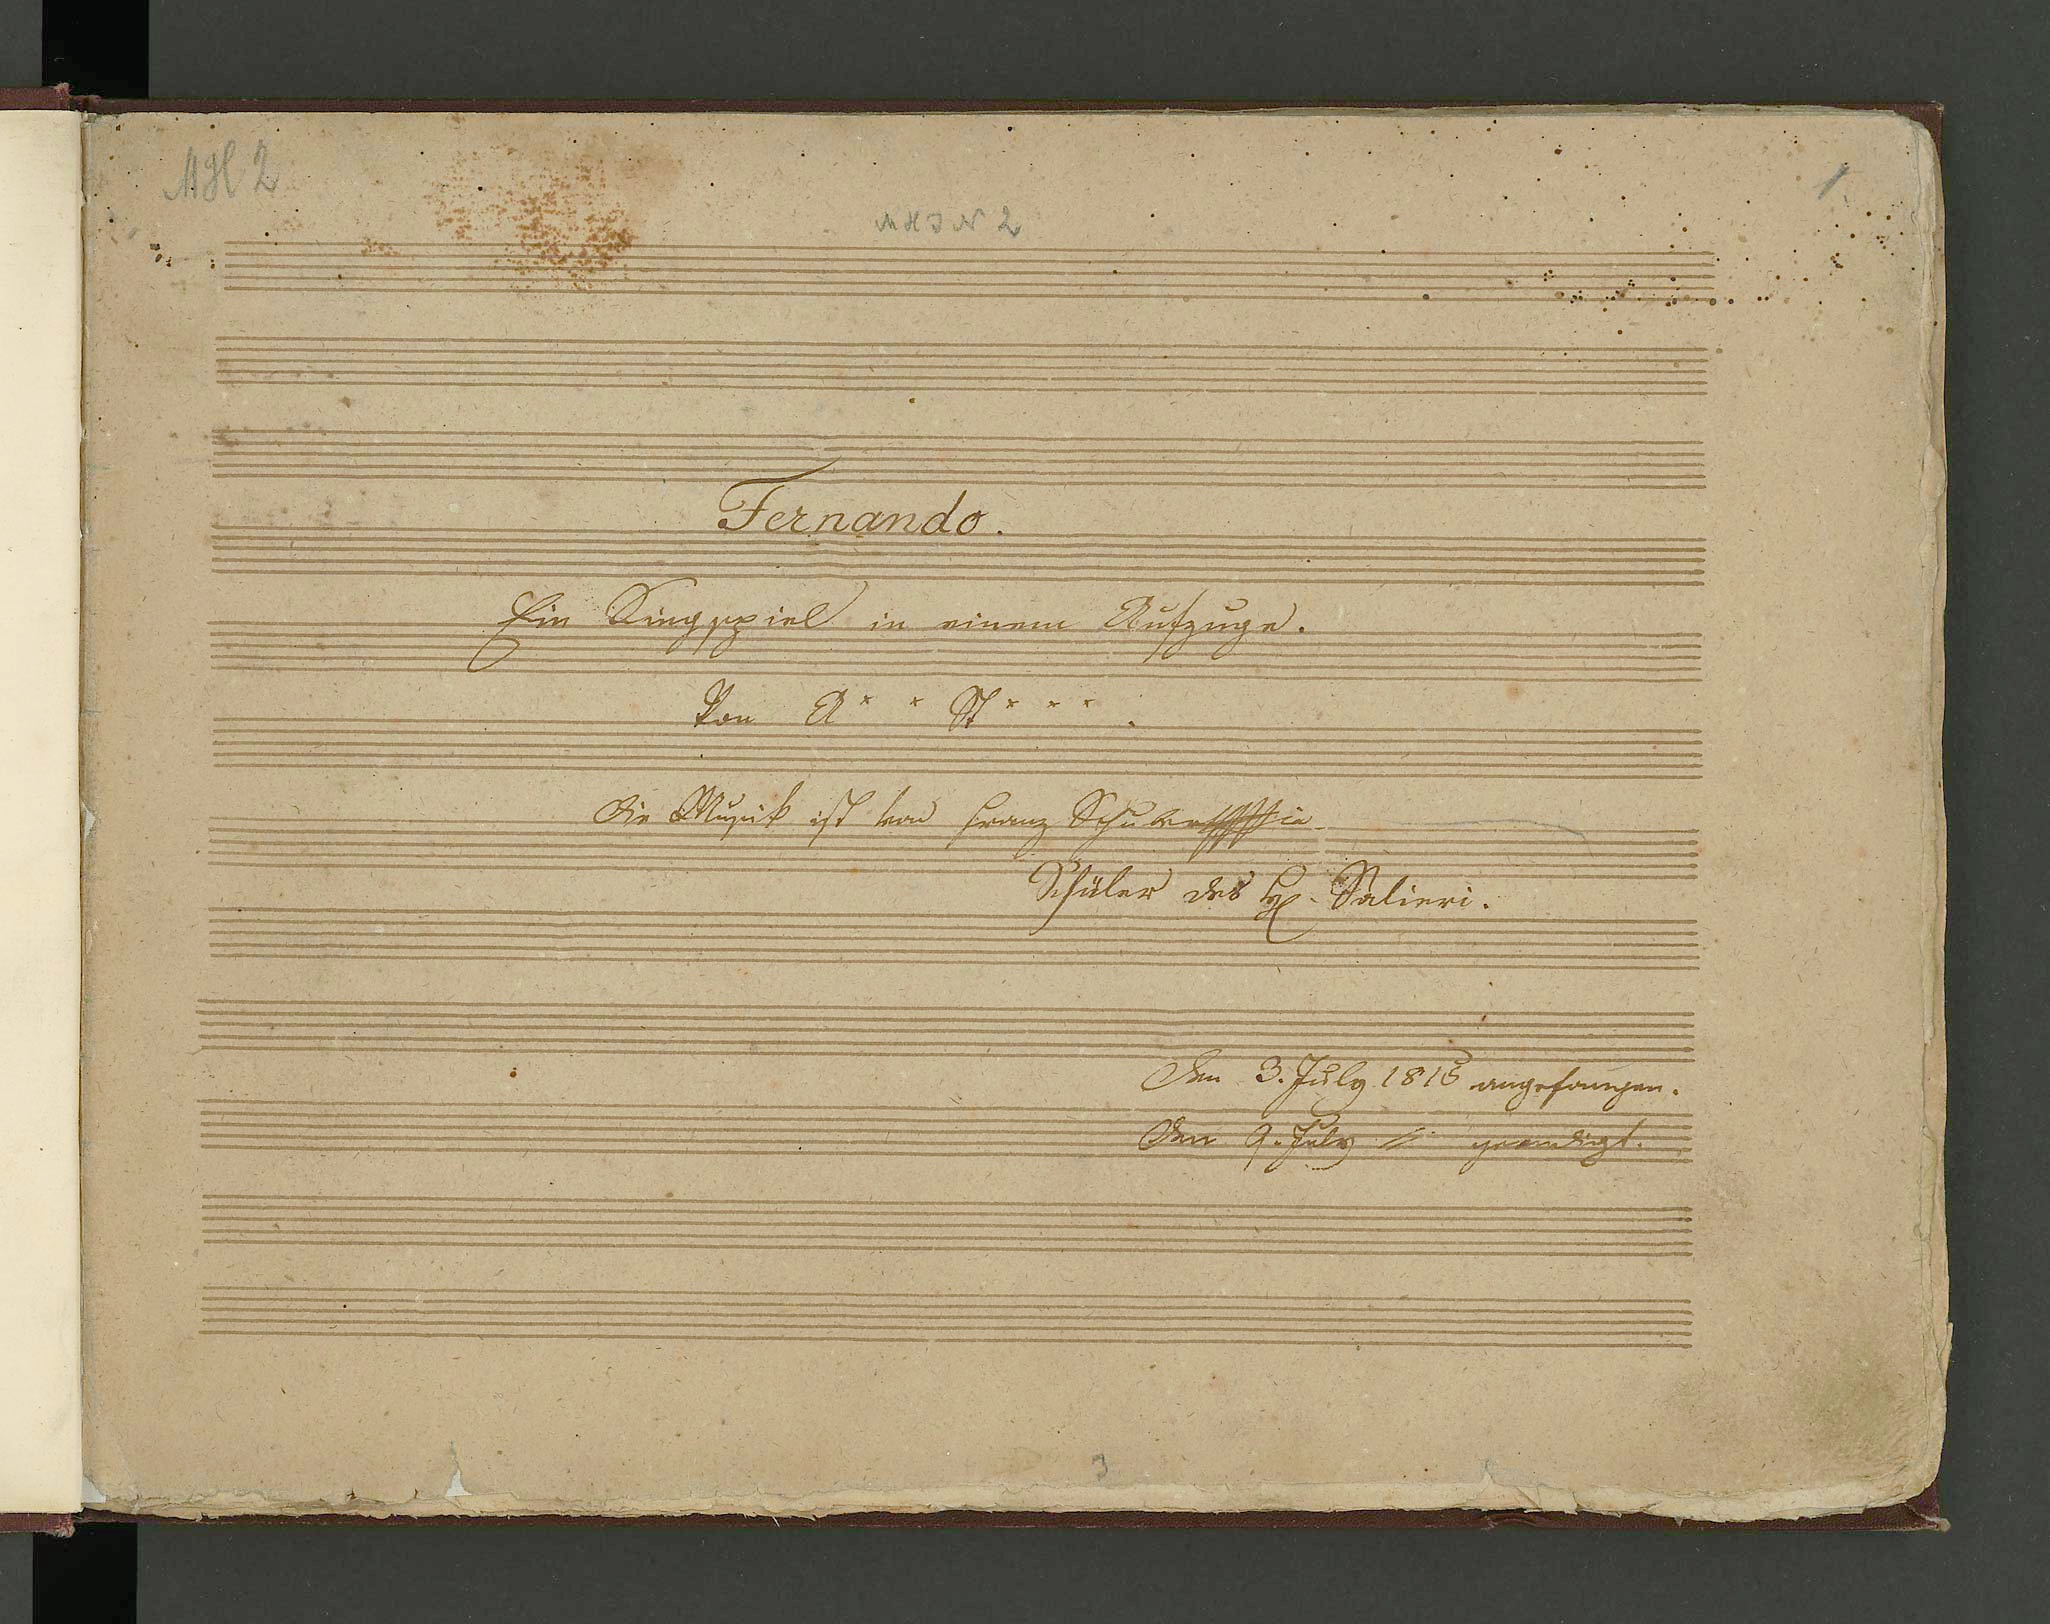 MH 2
1
MHJN 2
Fernando.
Ein Singspiel in einem Aufzuge.
Von A* * St* * * .
Die Musik ist von Franz Schubert
Schüler des H. Salieri.
Den 3. July 1815 angefangen.
Den 9. July // geendigt.
3